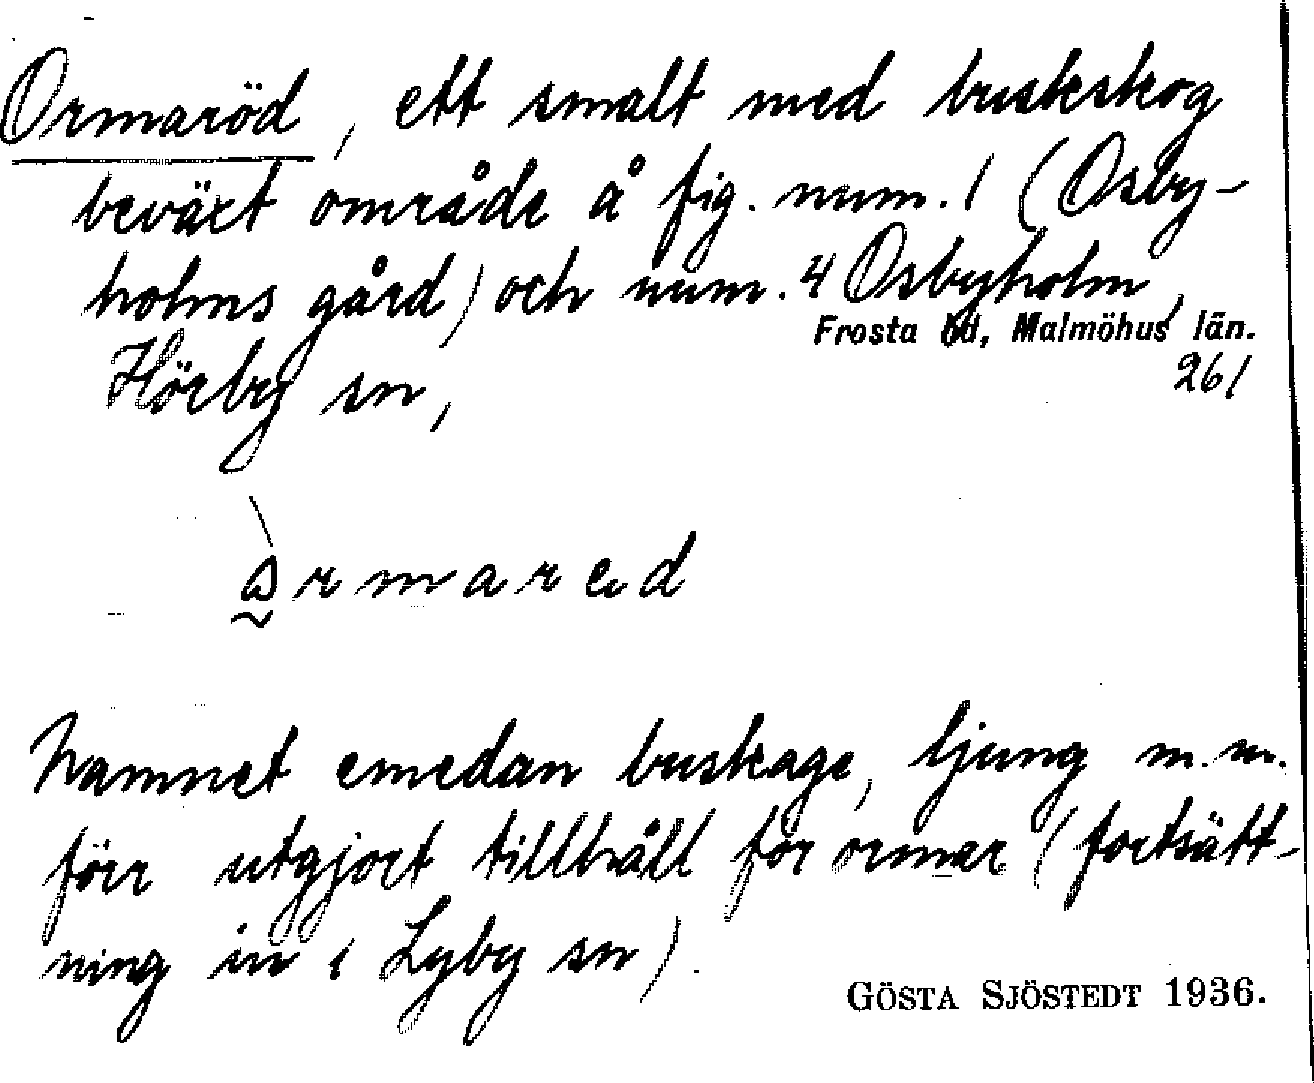 Ormaröd, ett smalt med buskskog
beväxt område å fig. num. 1 (Osby-
holms gård) och num. 4 Osbyholm,
Frosta hd, Malmöhus län.
Hörby sn,
261
òrmared
Namnet emedan buskage, ljung m.m.
förr utgjort tillhåll för ormar (fortsätt-
ning in i Lyby sn).
GÖSTA SJÖSTEDT 1936.